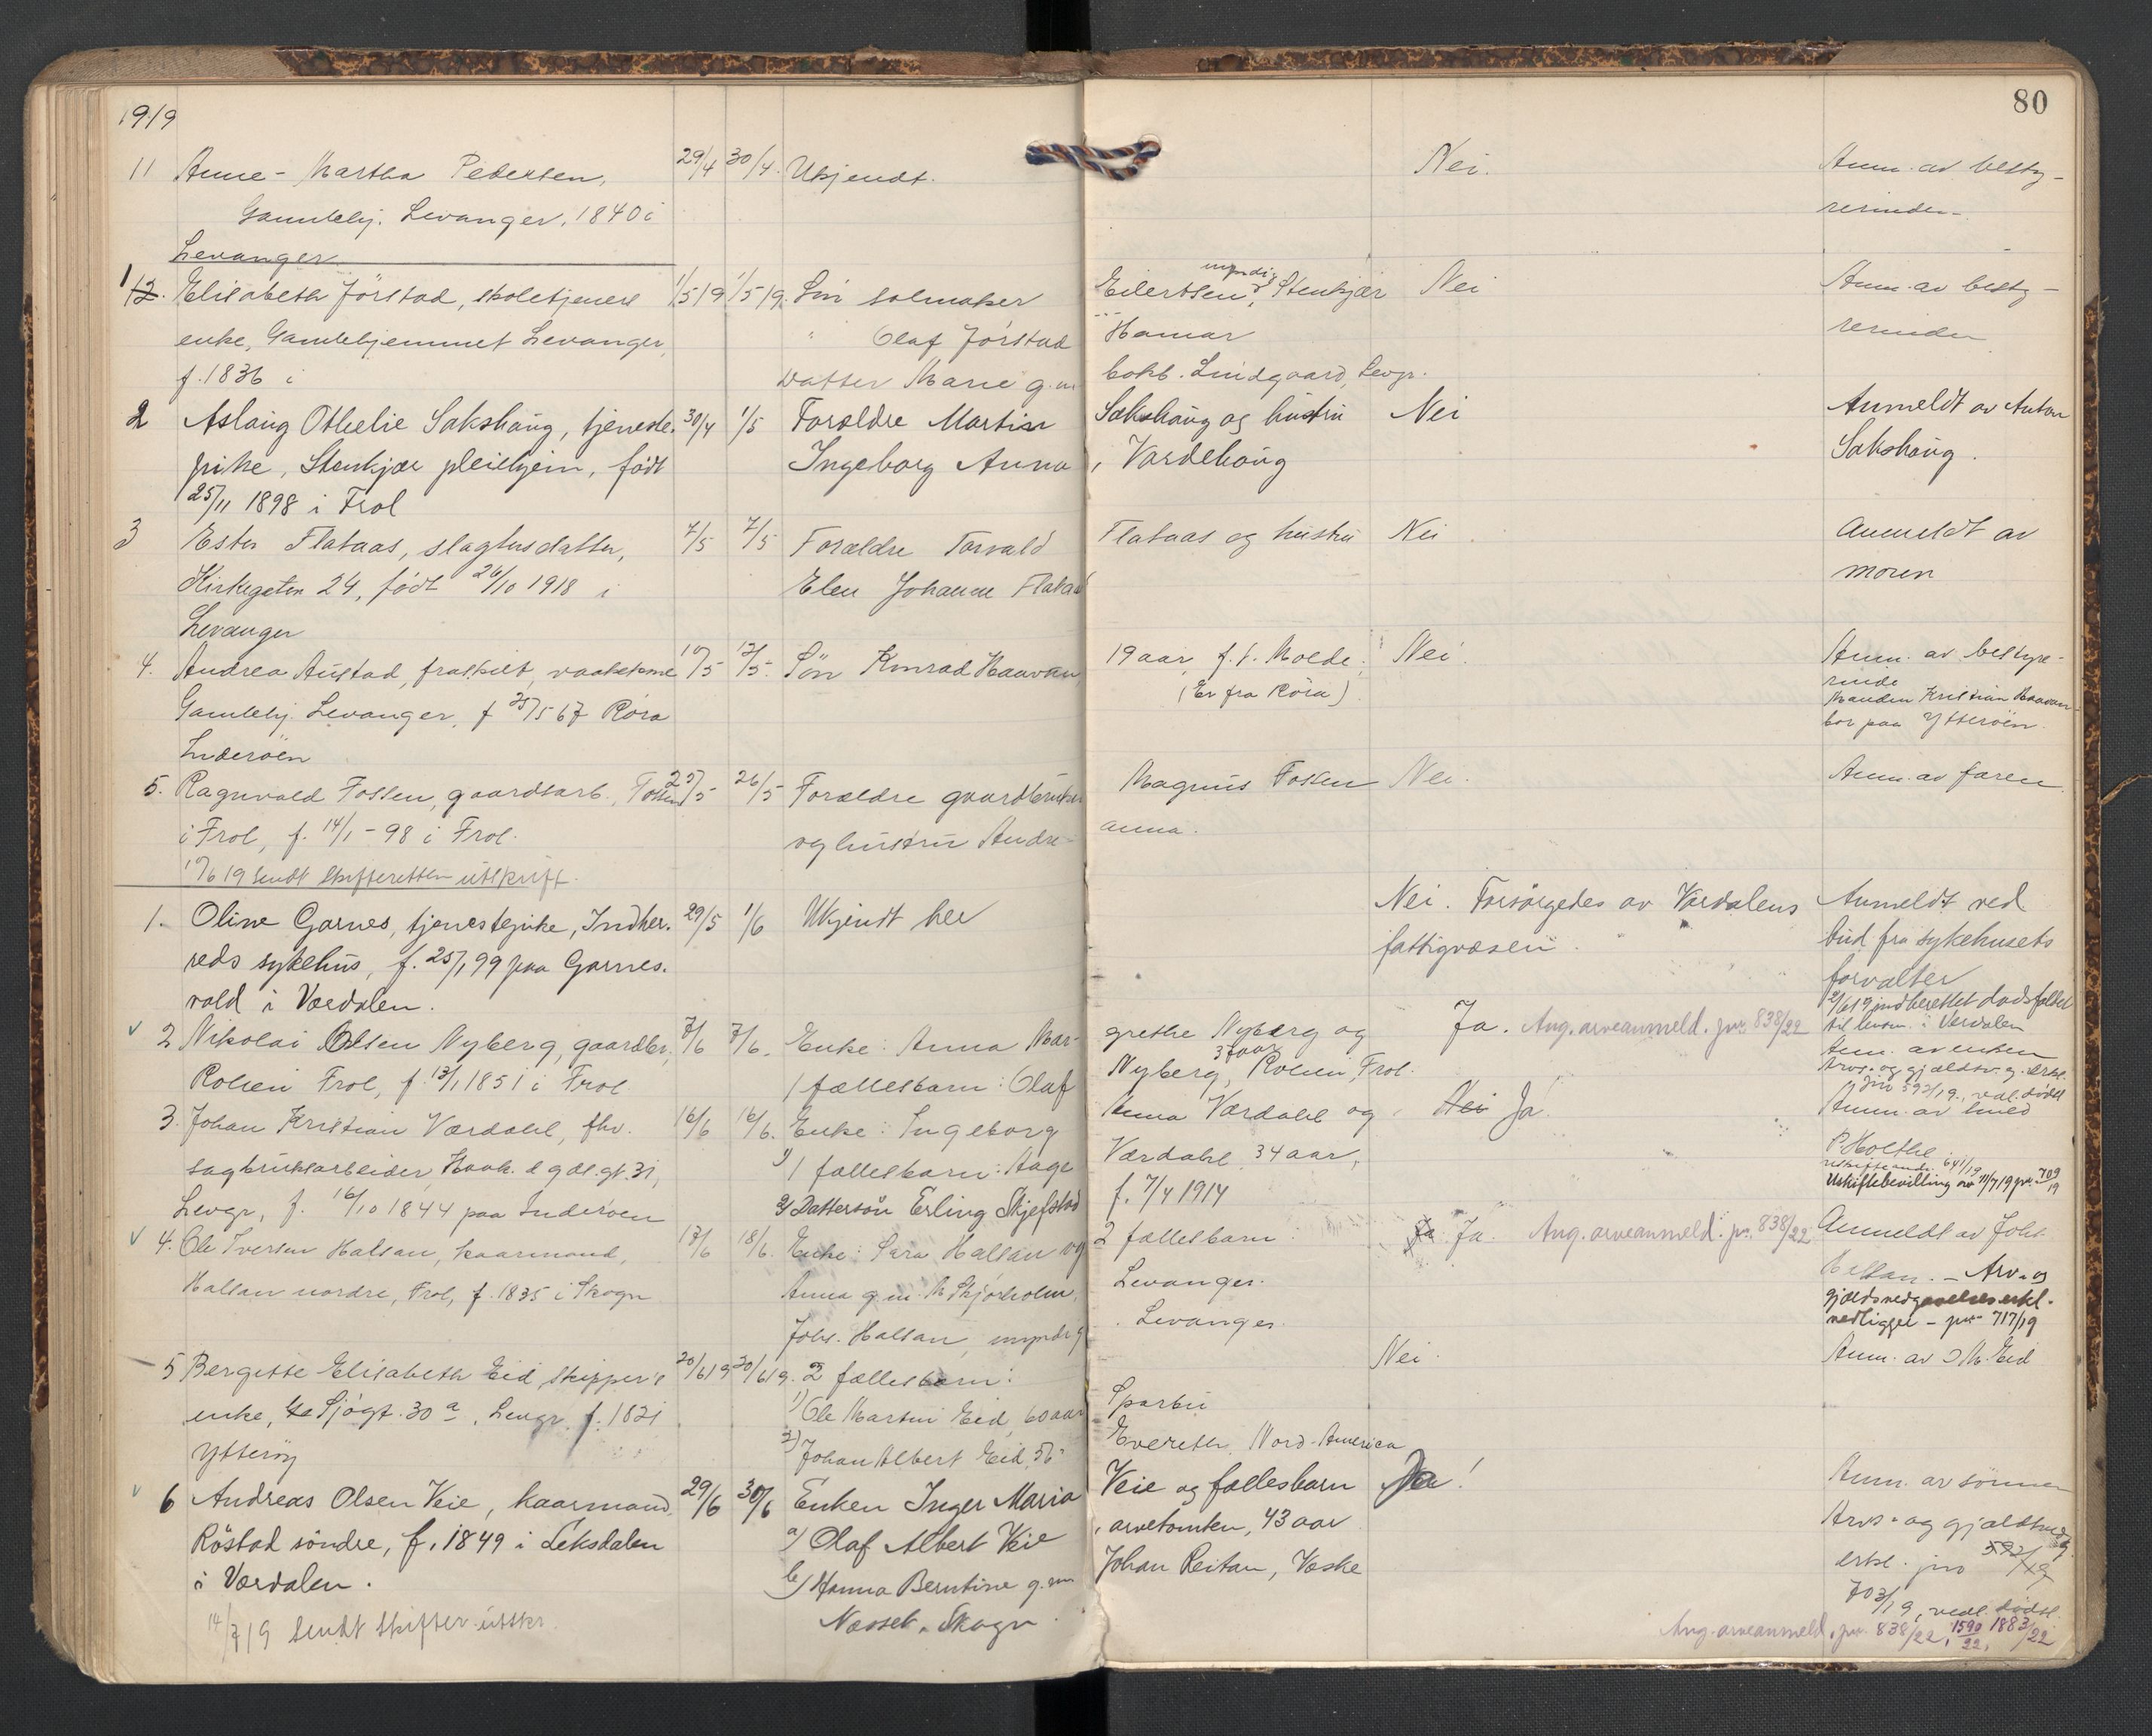 1919
80
11 Anne-Martha Pedersen, 29/4 30/4. Ukjendt. Nei. Anm. av besty-
Gamlehj. Levanger, 1840 i rerinden
Levanger
1 12. Elisabeth Jörstad, skoletjeners 1/5 19 1/5 19. Sön salmaker Eilertsen, myndig, Stenkjær Nei Anm. av besty-
enke, Gamlehjemmet Levanger, " Olaf Jörstad Hamar rerinden
f. 1836 i Datter Marie g.m. bokb. Lindgaard, Levgr.
2 Aslaug Othelie Sakshaug, tjeneste- 30/4 1/5 Forældre Martin Sakshaug og hustru Nei Anmeldt av Anton
pike, Stenkjær pleiehjem, født Ingeborg Anna, Vardehaug Sakshaug.
25/11 1898 i Frol
3 Ester Flataas, slagtersdatter, 7/5 7/5 Forældre Torvald Flataas og hustru Nei Anmeldt av
Kirkegaten 24, født 26/10 1918 i Elen Johanne Flataas moren
Levanger
4. Andrea Austad, fraskilt, vaskekone 10/5 12/5. Sön Konrad Haavan, 19 aar, f.t. Molde. Nei. Anm. av bestyre-
rinde
Gamlehj. Levanger, f 25/5 67 Röra (Er fra Röra) Manden Kristian Haavan
bor paa Ytteröen.
Inderöen
5. Ragnvald Fossen, gaardsarb., Fossen 25/5 26/5 Forældre gaardbruker Magnus Fossen Nei. Anm. av faren
i Frol, f. 14/1-98 i Frol. og hustru Andre- anna.
17/6 19 Sendt skifteretten utskrift.
1. Oline Garnes, tjenestepike, Indher- 29/5 1/6 Ukjendt her Nei. Forsörgedes av Værdalens Anmeldt ved
reds sykehus, f. 25/1 99 paa Garnes- fattigvæsen. bud fra sykehusets
vald i Værdalen. forvalter
2/6 19 indberettet dødsfaldet
til lensm. i Værdalen
2 Nikolai Olsen Nyberg, gaardbr., 7/6 7/6. Enke: Anna Mar- grethe Nyberg og Ja. Ang. arveanmeld. jnr. 838/22
Anm. av enken
Rolsien Frol, f. 13/1 1851 i Frol 1 fællesbarn: Olaf Nyberg, 37 aar, Rolsien, Frol. Arvs- og gjældsv. g. erkl.
jnr 592/19, ved. dödsf.
3. Johan Kristian Værdahl, fhv. 16/6 16/6. Enke: Ingeborg Anna Værdahl og Nei Ja! Anm. av smed
sagbruksarbeider, Haak. d gdes. gt. 31, 1) 1 fællesbarn: Aage Værdahl, 34 aar, P. Holthe.
Levgr, f. 16/10 1844 paa Inderöen 2) Dattersön Erling Skjefstad f. 7/4 1914 Uskiftebevilling av 11/7 19 jnr. 709/19
4. Ole Iversen Halsan, kaarmand, 17/6 18/6. Enke: Sara Halsan og 2 fællesbarn: Ja. Ja. Ang. arveanmeld. jnr. 838/22 Anmeldt av Johs.
Halsan nordre, Frol, f. 1835 i Skogn Anna g.m. M. Skjörholm, Levanger. Halsan. - Arv- og
gjældsvedgaaelseserkl.
Johs. Halsan, myndig Levanger. vedligger - jnr 717/19
5 Bergitte Elisabeth Eid, skipper's 20/6 19 30/6 19. 2 fællesbarn: Nei. Anm. av O M. Eid
enke, Sjögt. 30 a, Levgr. f. 1831 1) Ole Martin Eid, 60 aar Sparbu
Ytteröy 2) Johan Albert Eid, 56 " Everett, Nord-America
6 Andreas Olsen Veie, kaarmand, 29/6 30/6 Enken Inger Maria Veie og fællesbarn Ja! Anm. av sönnen
Röstad söndre, f. 1849 i Leksdalen a) Olaf Albert Veie, arvetomten, 43 aar Arvs- og gjældsvedg.
i Værdalen. b) Hanna Berntine g.m. Johan Reitan, Væske erkl. jnr 592/19
Nesset, Skogn. 703/19, vedl. dödsf.
14/7 19 Sendt skifter. utskr. Ang. arveanmeld. jnr. 838/22, 1590/22, 1883/22